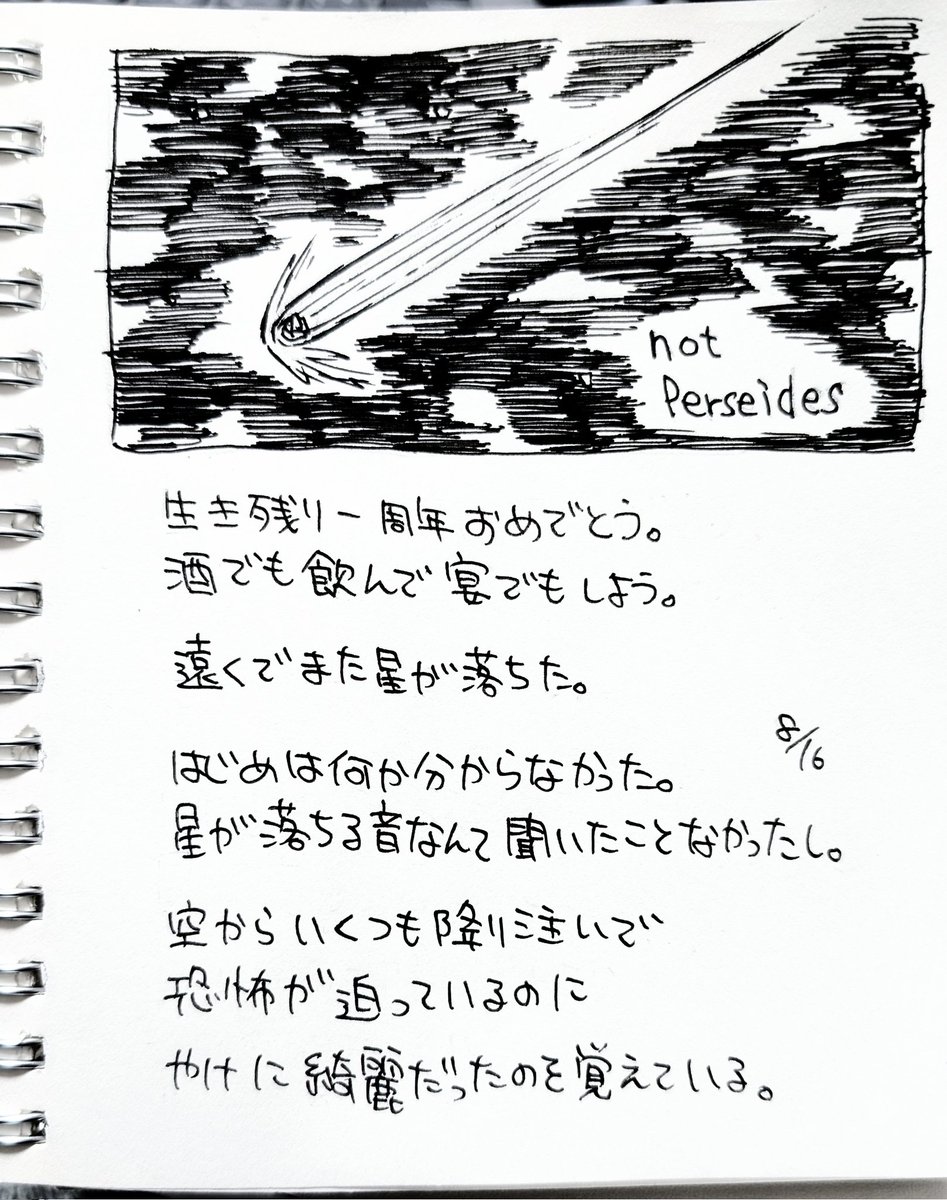 not
Perseides
生き残り一周年おめでとう。
酒でも飲んで宴でもしよう。
遠くでまた星が落ちた。
8/16
はじめは何か分からなかった。
星が落ちる音なんて聞いたことなかったし。
空からいくつも降り注いで
恐怖が迫っているのに
やけに綺麗だったのを覚えている。